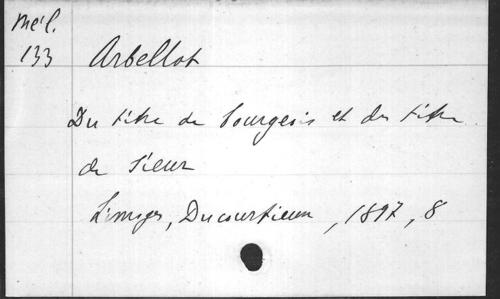 Mél.
133
Arbellot
Du titre de bourgeois et du titre
de Sieur
Limoges, Ducourtieux, 1897, 8